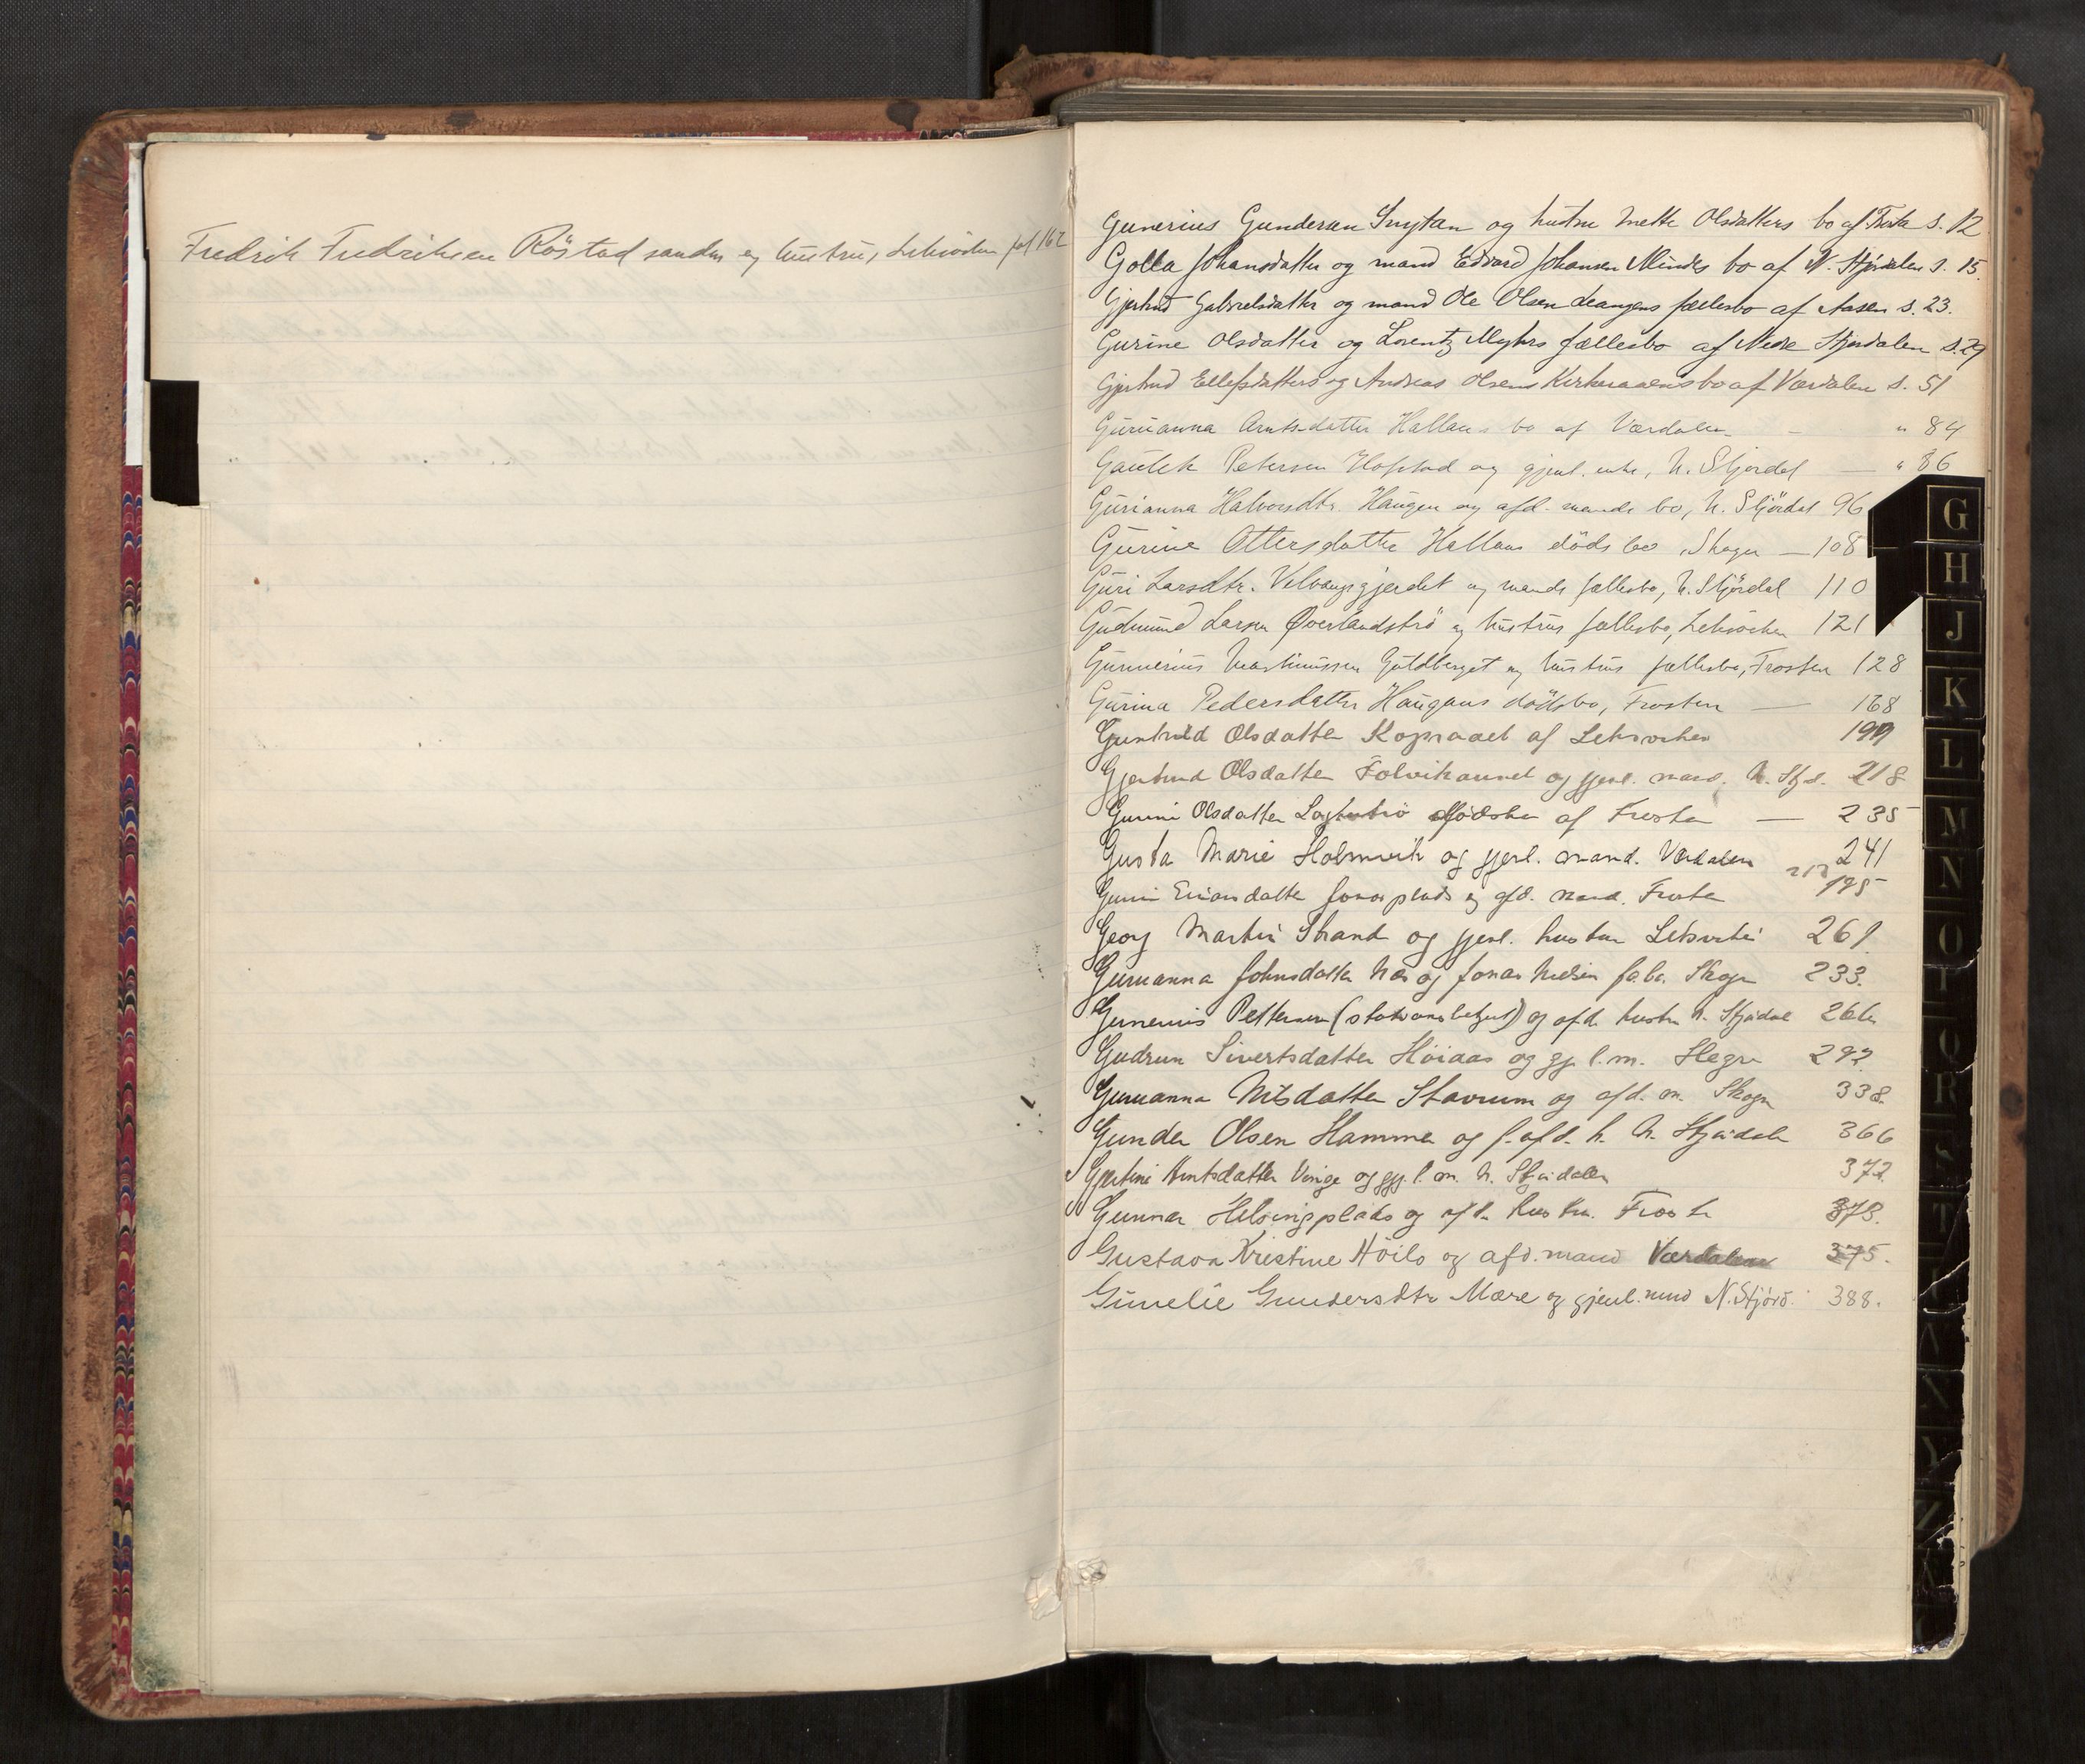 Fredrik Fredriksen Röstad sanden og hustru, Leksviken fol 162
Gunerius Gundersen Snytan og hustru Mette Olsdatters bo af Frosta s. 12
Golla Johansdatter og mand Edvard Johansen Mindes bo af N. Stjørdalen s. 15.
Gjertrud Gabrielsdatter og mand Ole Olsen Leangens fællesbo af Aasen s. 23.
Gurine Olsdatter og Lorentz Myhrs fællesbo af Nedre Stjørdalen s. 29
Gjertrud Ellefsdatters og Andreas Olsens bo af Værdalen s. 51
Gurianna Arntsdatter Hallans bo af Værdalen - " 84
Petersen Hofstad og gjenl. enke, N. Stjørdal — " 86
Gurianna Halvorsdtr. Haugen og afd. mands bo, N. Stjördal 96
Gurine Ottersdatter Hallans dödsbo, Skogn — 108
Guri Larsdtr. Velvangsgjerdet og mands fællesbo, N. Stjördal 110
Gudmund Larsen Øverlandströ og hustrus fællesbo, Leksviken 121
Gunnerius Martinussen Guldberget og hustrus fællesbo, Frosten 128
Gurina Pedersdatter Haugans dödsbo, Frosten — 168
Gunhild Olsdatter Kopraaet af Leksviken 199
Gjertrud Olsdatter og gjenl. mand. N. Stjd. 218
Olsdatter dødsbo af Frosta — 235
Gusta Marie Holmvik og gjenl. mand. Værdalen 241
og afd. mand. Frosta 195
Georg Martin Strand og gjenl. hustru Leksviken 261
Gurianna Johnsdatter Næs og Jonas Nielsen fa.bo. Skogn 233.
Gunerius Pettersen (stationsbetjent) og afd. hustru N. Stjørdal 266
Gudrun Sivertsdatter Höiaas og gj. l. m. Hegra 292.
Gurianna Nilsdatter Stavrum og afd. m. Skogn 338.
Gunder Olsen Hammer og f. afd. h. N. Stjørdalen 366
Arntsdatter Vinge og gj. l. m. N. Stjørdalen 372.
Gunnar Helsingplads og afd. hustru. Frosta 373.
Gustava Kristine Höilo og afd. mand Værdalen 375.
Gunelie Gundersdtr Mære og gjenl. mand N. Stjörd. 388.
G
H
J
K
L
M
N
O
P
Q
R
S
T